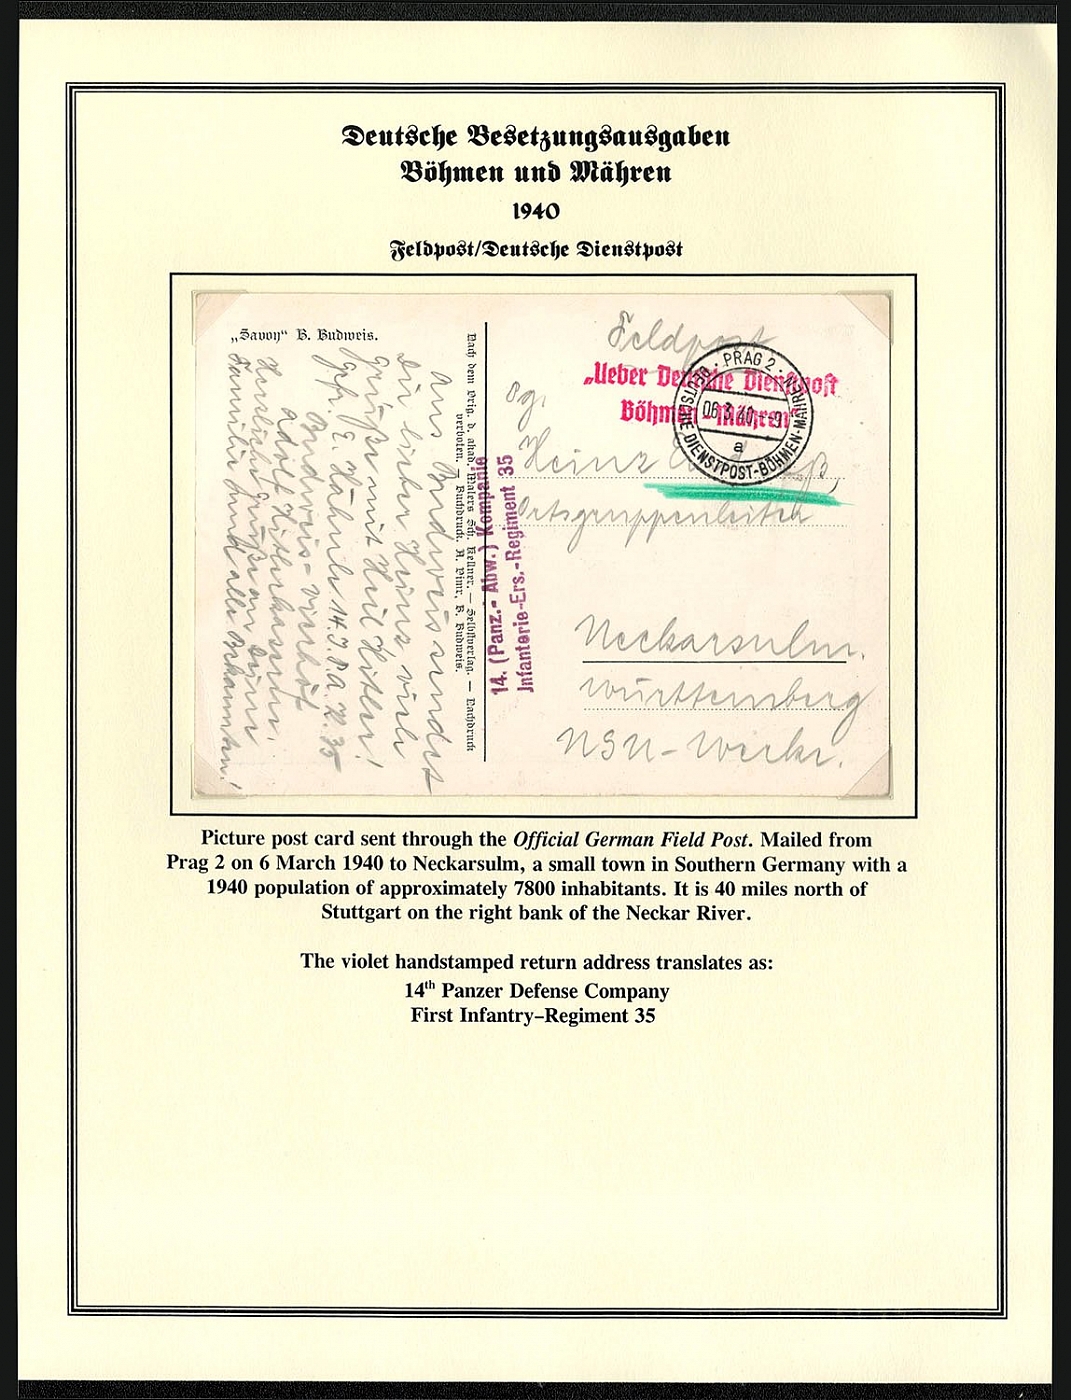 Deutsche Besetzungsausgaben
Böhmen und Mähren
1940
Feldpost/Deutsche Dienstpost
„Savoy“ B. Budweis.
Aus Budweis sendet
Dir lieber Heinz viele
Grüße mit Heil Hitler!
Gefr. E. 14. J. E. R. 35
Budweis
Adolf Hitlerkaserne.
Herzliche Grüße an Deine
Familie und alle Bekannten!
Nach dem Orig. d. akad. Malers Sch. Kellner. — Selbstverlag. — Nachdruck
verboten. — Buchdruck. A. Pimr, B. Budweis.
14. (Panz.- Abw.) Kompanie
Infanterie-Ers.-Regiment 35
Feldpost
„Ueber Deutsche Dienstpost
Böhmen-Mähren“
PRAG 2
06.3.40.-9
a
DEUTSCHE DIENSTPOST-BÖHMEN-MÄHREN
Pg.
Heinz
Ortsgruppenleiter
Neckarsulm.
Württemberg
NSU-Werke.
Picture post card sent through the Official German Field Post. Mailed from
Prag 2 on 6 March 1940 to Neckarsulm, a small town in Southern Germany with a
1940 population of approximately 7800 inhabitants. It is 40 miles north of
Stuttgart on the right bank of the Neckar River.
The violet handstamped return address translates as:
14th Panzer Defense Company
First Infantry–Regiment 35